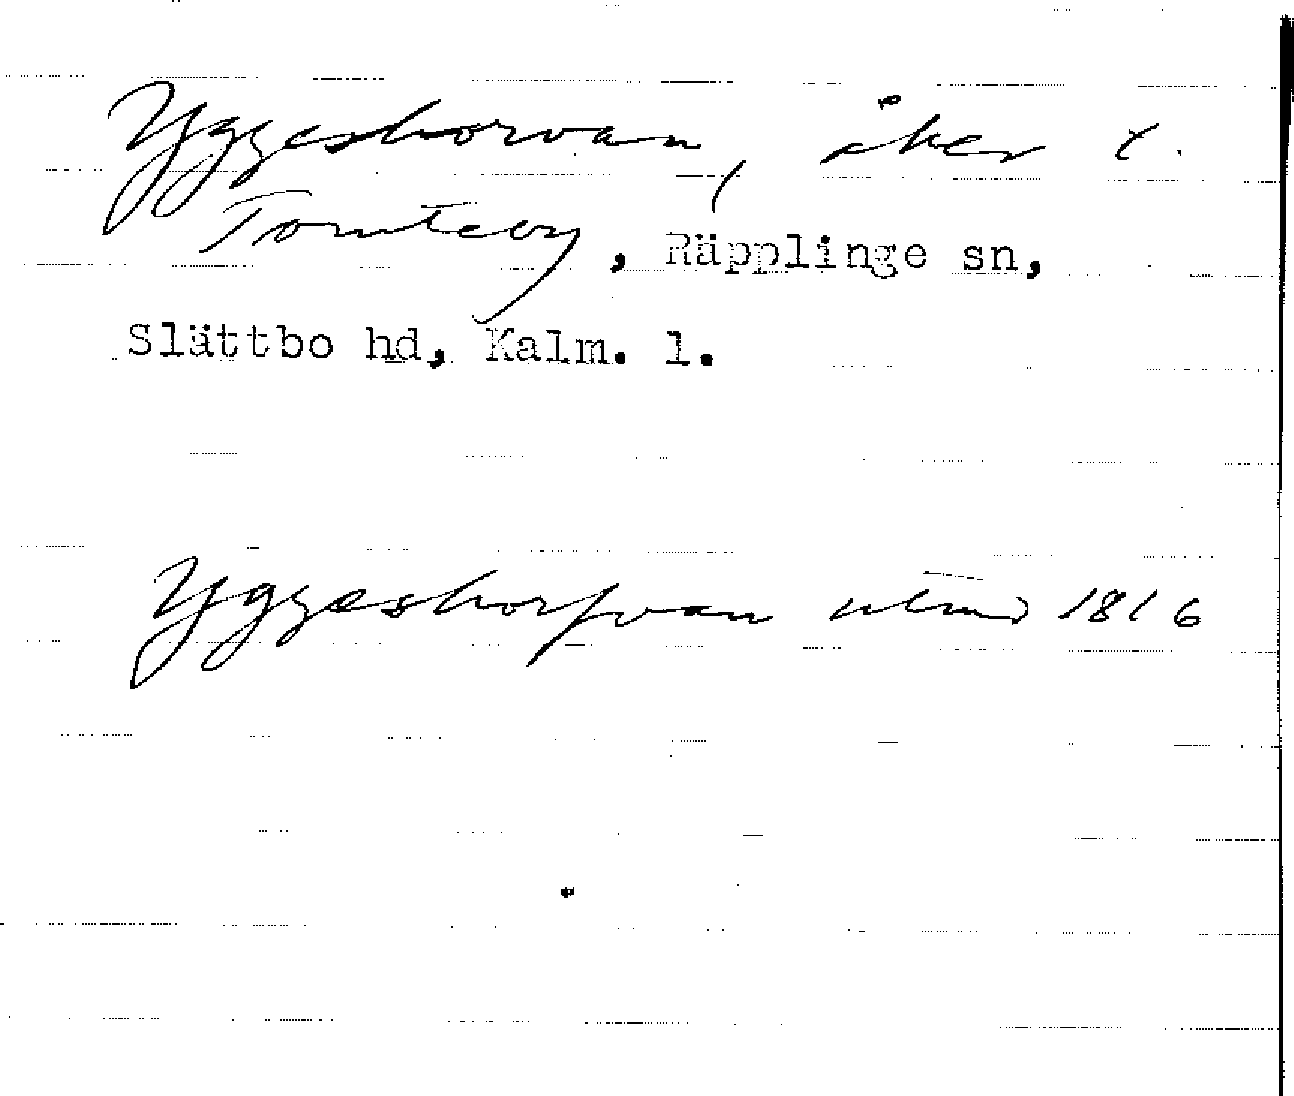 Yggeshorvan, åker t.
Tomteby, Räpplinge sn,
Slättbo hd, Kalm. l.
Yggeshorfvan 1816